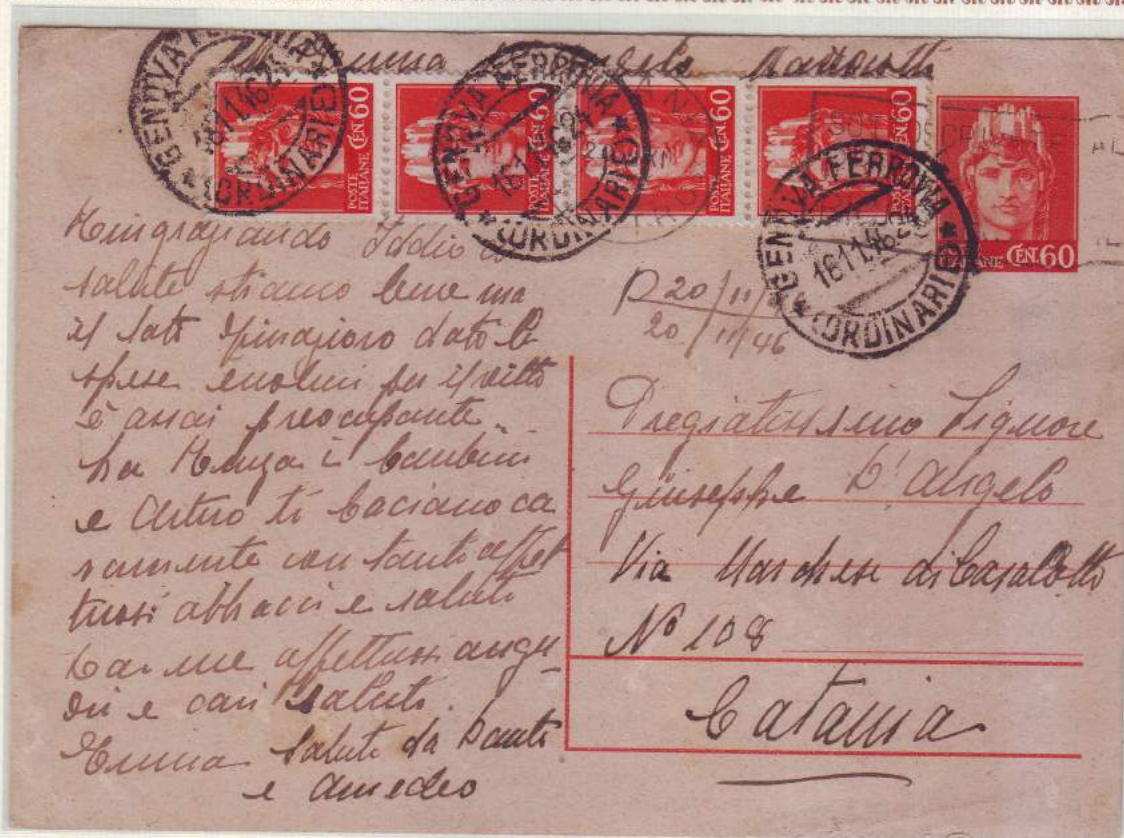 Emma
GENOVA FERROVIA
(ORDINARIE)
16.11.46.24
CEN 60
POSTE ITALIANE
CEN 60
POSTE ITALIANE
GENOVA FERROVIA
(ORDINARIE)
16.11.46.24
CEN 60
POSTE ITALIANE
CEN 60
POSTE ITALIANE
GENOVA FERROVIA
(ORDINARIE)
16.11.46.24
CEN. 60
Ringraziando Iddio di
salute stiamo bene ma
il lato dato le
spese enormi per il vitto
è assai preocupante.
La Renza i bambini
e Arturo ti baciano ca
ramente con tanti affet
tuosi abbracci e saluti
Da me affettuosi augu
rii e cari saluti.
Emma Saluti da Dante
e Amedeo
R 20/11/
20/11/46
Pregiatissimo Signore
Giuseppe D'Angelo
Via Marchese di Casalotto
Nº 108
Catania